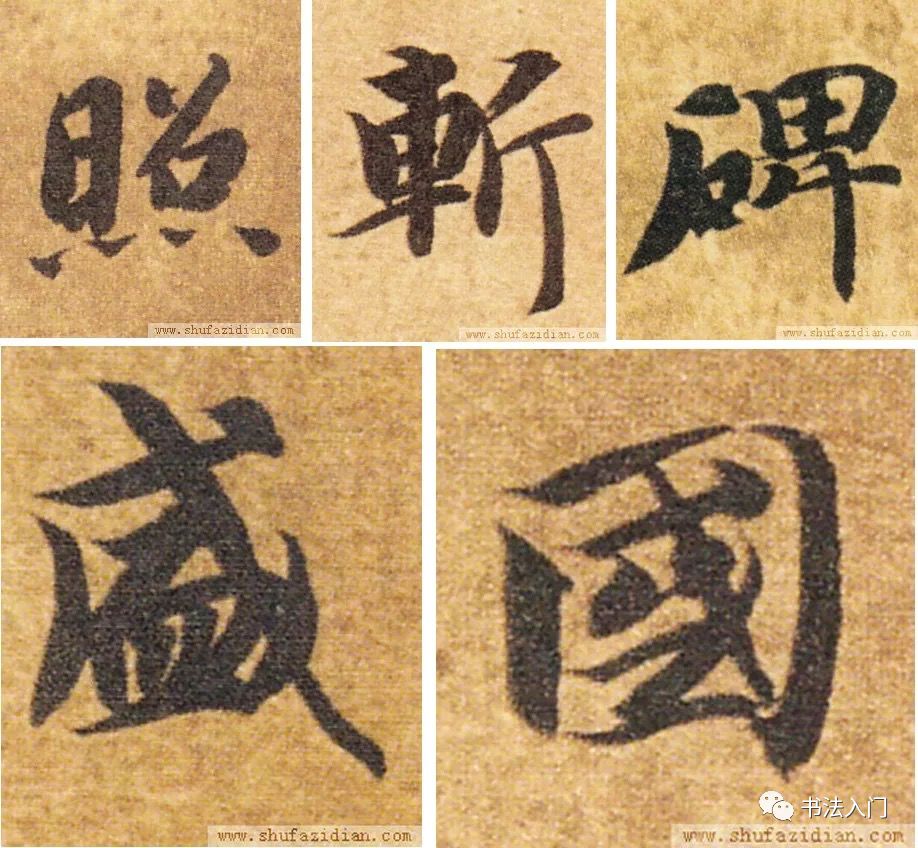 照 斬 碑
www.shufazidian.com www.shufazidian.com www.shufazidian.com
盛 國
书法入门
www.shufazidian.com www.shufazidian.com